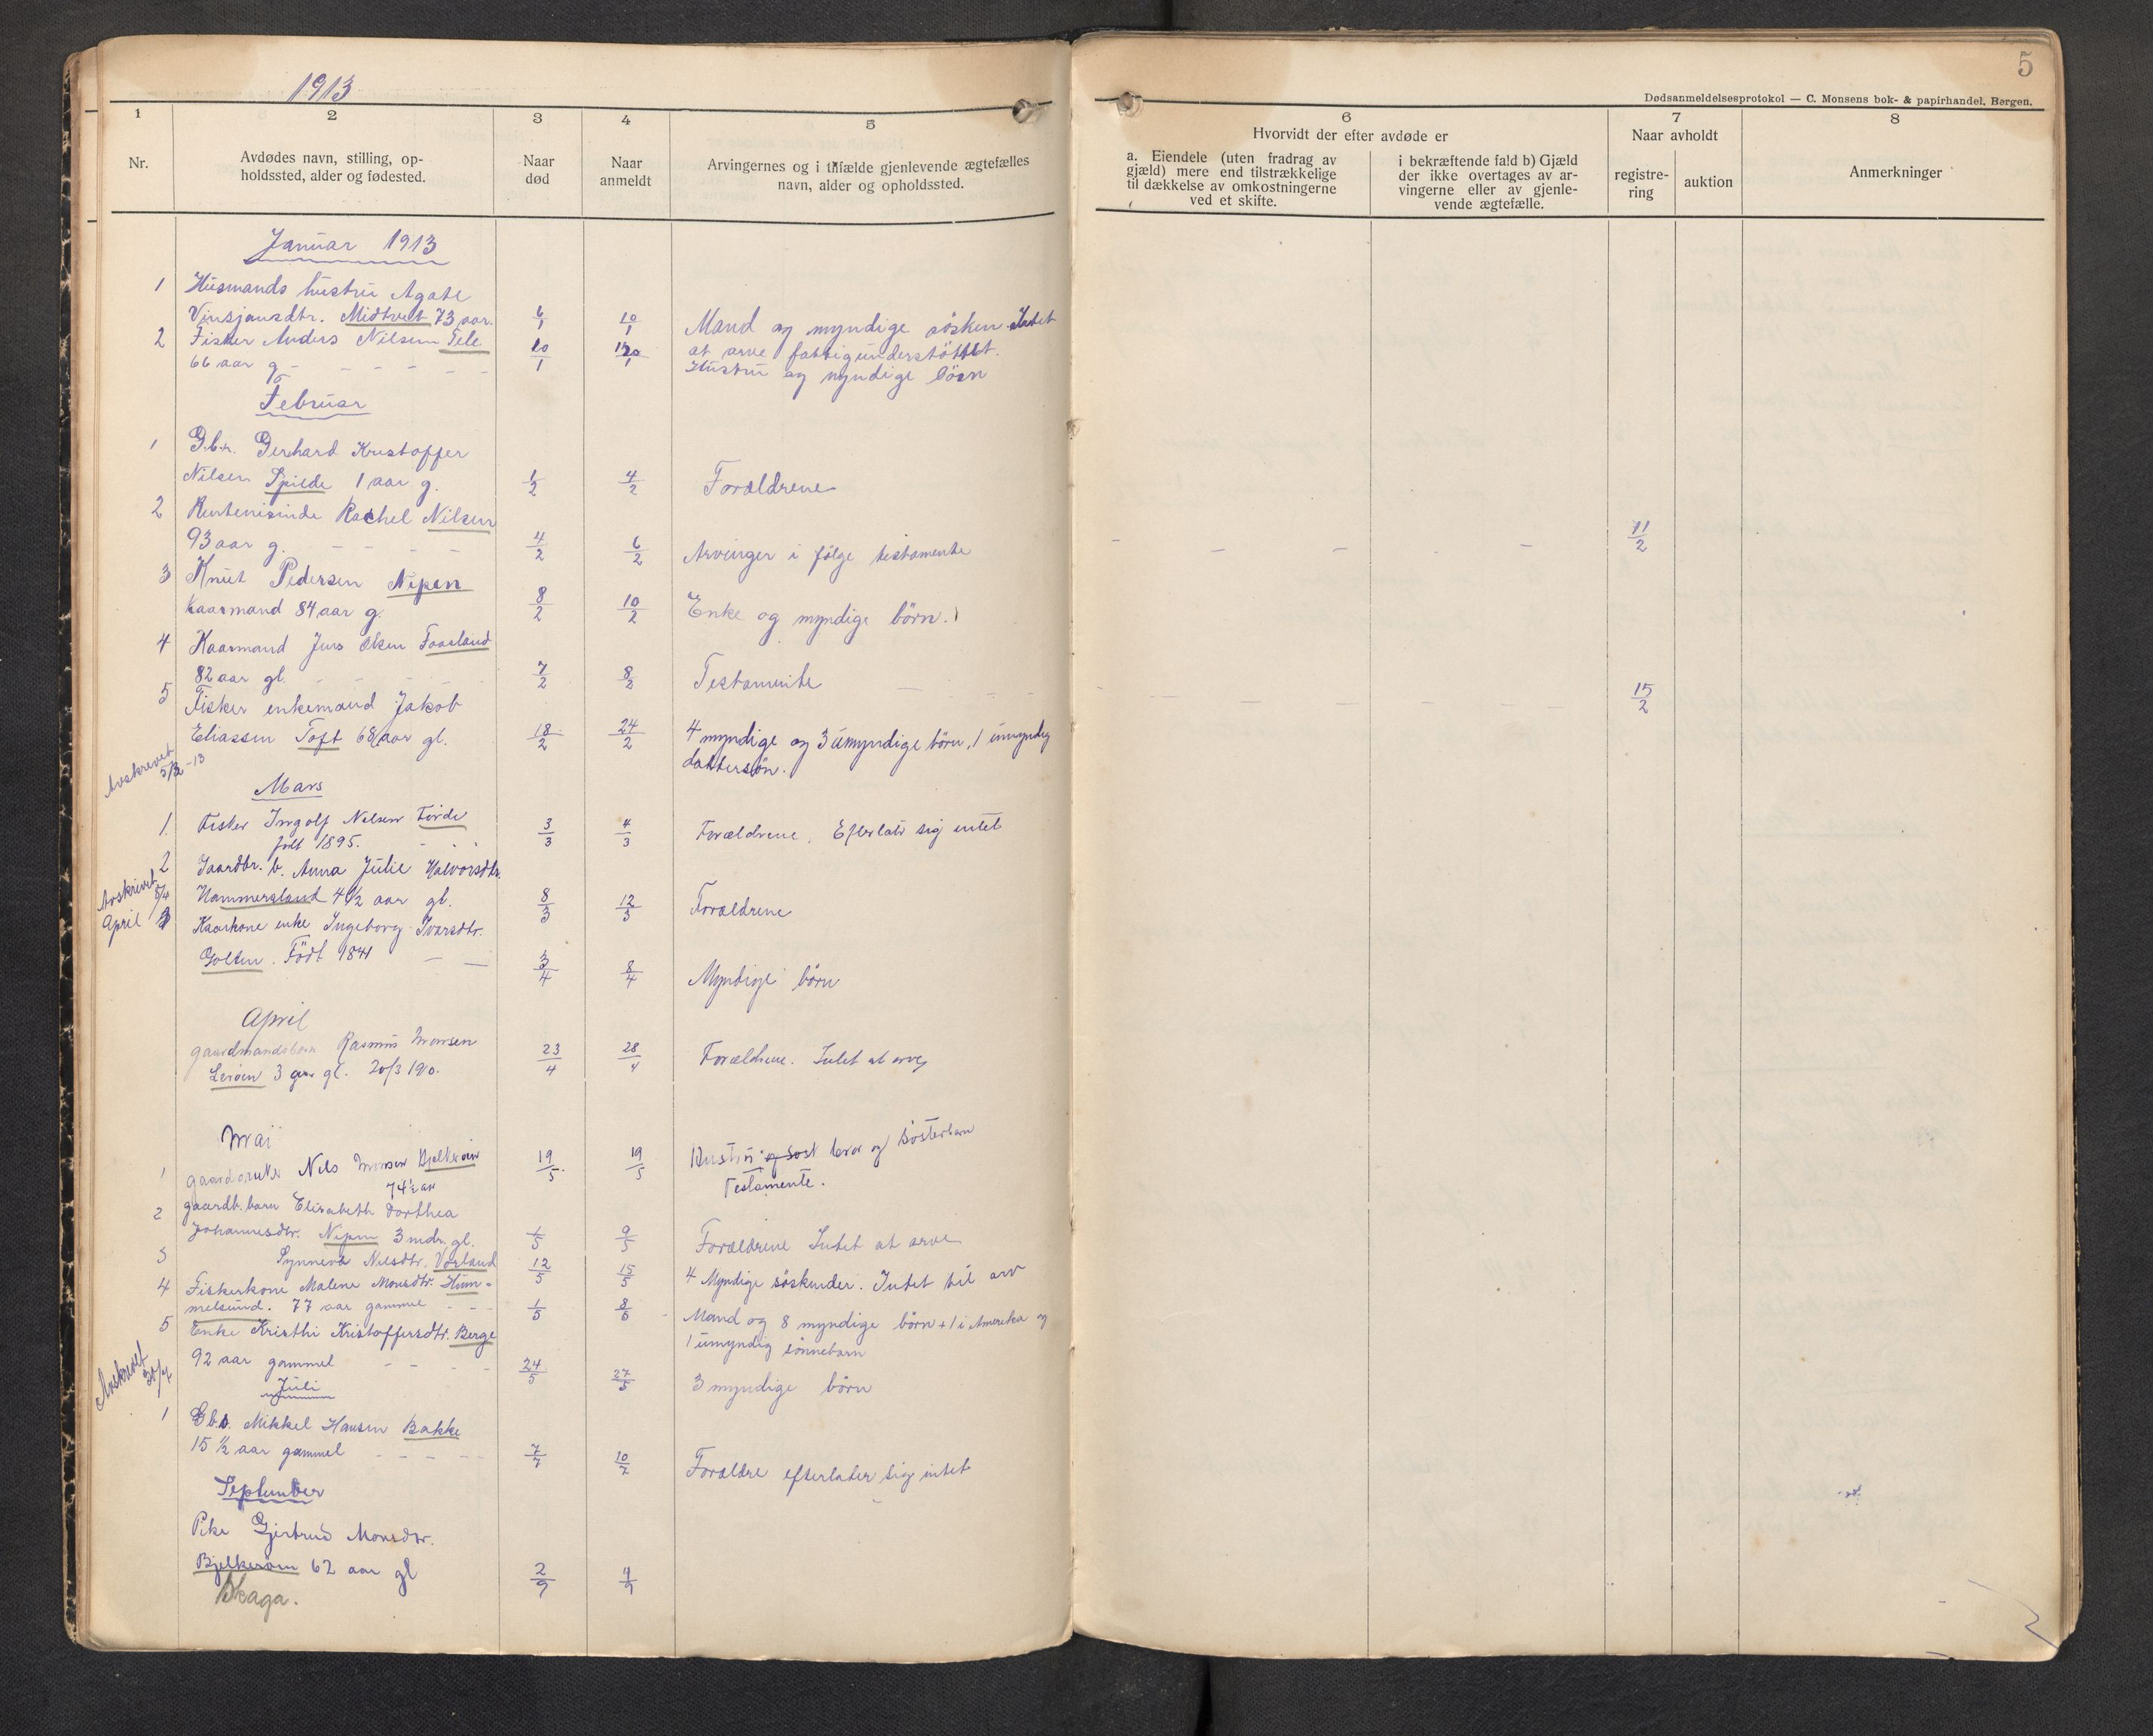 1913
5
Dødsanmeldelsesprotokol — C. Monsens bok- & papirhandel, Bergen.
1
2
3
4
5
6
7
8
Nr.
Avdødes navn, stilling, op-
holdssted, alder og fødested.
Naar
død
Naar
anmeldt
Arvingernes og i tilfælde gjenlevende ægtefælles
navn, alder og opholdssted.
Hvorvidt der efter avdøde er
a. Eiendele (uten fradrag av
gjæld) mere end tilstrækkelige
til dækkelse av omkostningerne
ved et skifte.
i bekræftende fald b) Gjæld
der ikke overtages av ar-
vingerne eller av gjenle-
vende ægtefælle.
Naar avholdt
registre-
ring
auktion
Anmerkninger
Januar 1913
1 Husmands hustru Agate
Vinsjansdtr. Midtveit 73 aar. 6/1 10/1 Mand og myndige søsken Intet
at arve fattigunderstøttet.
2 Fisker Anders Nilsen Tele 10/1
66 aar g. Hustru og myndige börn
Februar
1 G.b.r. Gerhard Kristoffer
Nilsen Spilde 1 aar g. 1/2 4/2 Forældrene
2 Rentenisinde Rachel Nilsen
93 aar g. 4/2 6/2 Arvinger i følge testamente 11/2
3 Knut Pedersen Nipen
Kaarmand 84 aar g. 8/2 10/2 Enke og myndige börn.
4 Kaarmand Jens Olsen Faasland
82 aar gl. 7/2 8/2 Testamente 15/2
5 Fisker enkemand Jakob
Eliassen Toft 68 aar gl. 18/2 24/2 4 myndige og 3 umyndige börn, 1 umyndig
dattersön.
Avskrevet
Mars
1. Fisker Ingolf Nilsen Förde 3/3 4/3 Forældrene. Efterlatr sig intet
født 1895.
2 Gaardbr. b. Anna Julie Halvorsdtr.
Hammersland 4 1/2 aar gl. 8/3 12/3 Forældrene
Avskrivet 8/4
April 3 Kaarkone enke Ingeborg Ivarsdtr.
Golten. Födt 1841 3/4 8/4 Myndige börn
April
gaardmandsbarn Rasmus Monsen
Leröen 3 aar gl. 20/3 1910. 23/4 28/4 Forældrene. Intet at arve
Mai
1 gaardbruker Nils Monsen Bjelkeröen 19/5 19/5 Hustru og søst bror og søsterbarn
74 1/2 aar Testamente.
2 gaardb. barn Elisabeth Dorthea
Johannesdtr. Nipen 3 mdr. gl. 1/5 9/5 Forældrene Intet at arve
3 Synneva Nilsdtr. Vorland 12/5 15/5 4 Myndige söskender. Intet til arv
4 Fiskerkone Malene Monsdtr. Hum-
melsund. 77 aar gammel 1/5 8/5 Mand og 8 myndige börn + 1 i Amerika og
1 umyndig sönnebarn
5 Enke Kristhi Kristoffersdtr. Berge
92 aar gammel 24/5 27/5 3 myndige börn
Avskrevet
Juli
1 Gbs. Mikkel Hansen Bakke
15 1/2 aar gammel 7/7 10/7 Forældre efterlater sig intet
September
Pike Gjertrud Monsdtr.
Bjelkeröen 62 aar gl 2/9 4/9
Skaga.